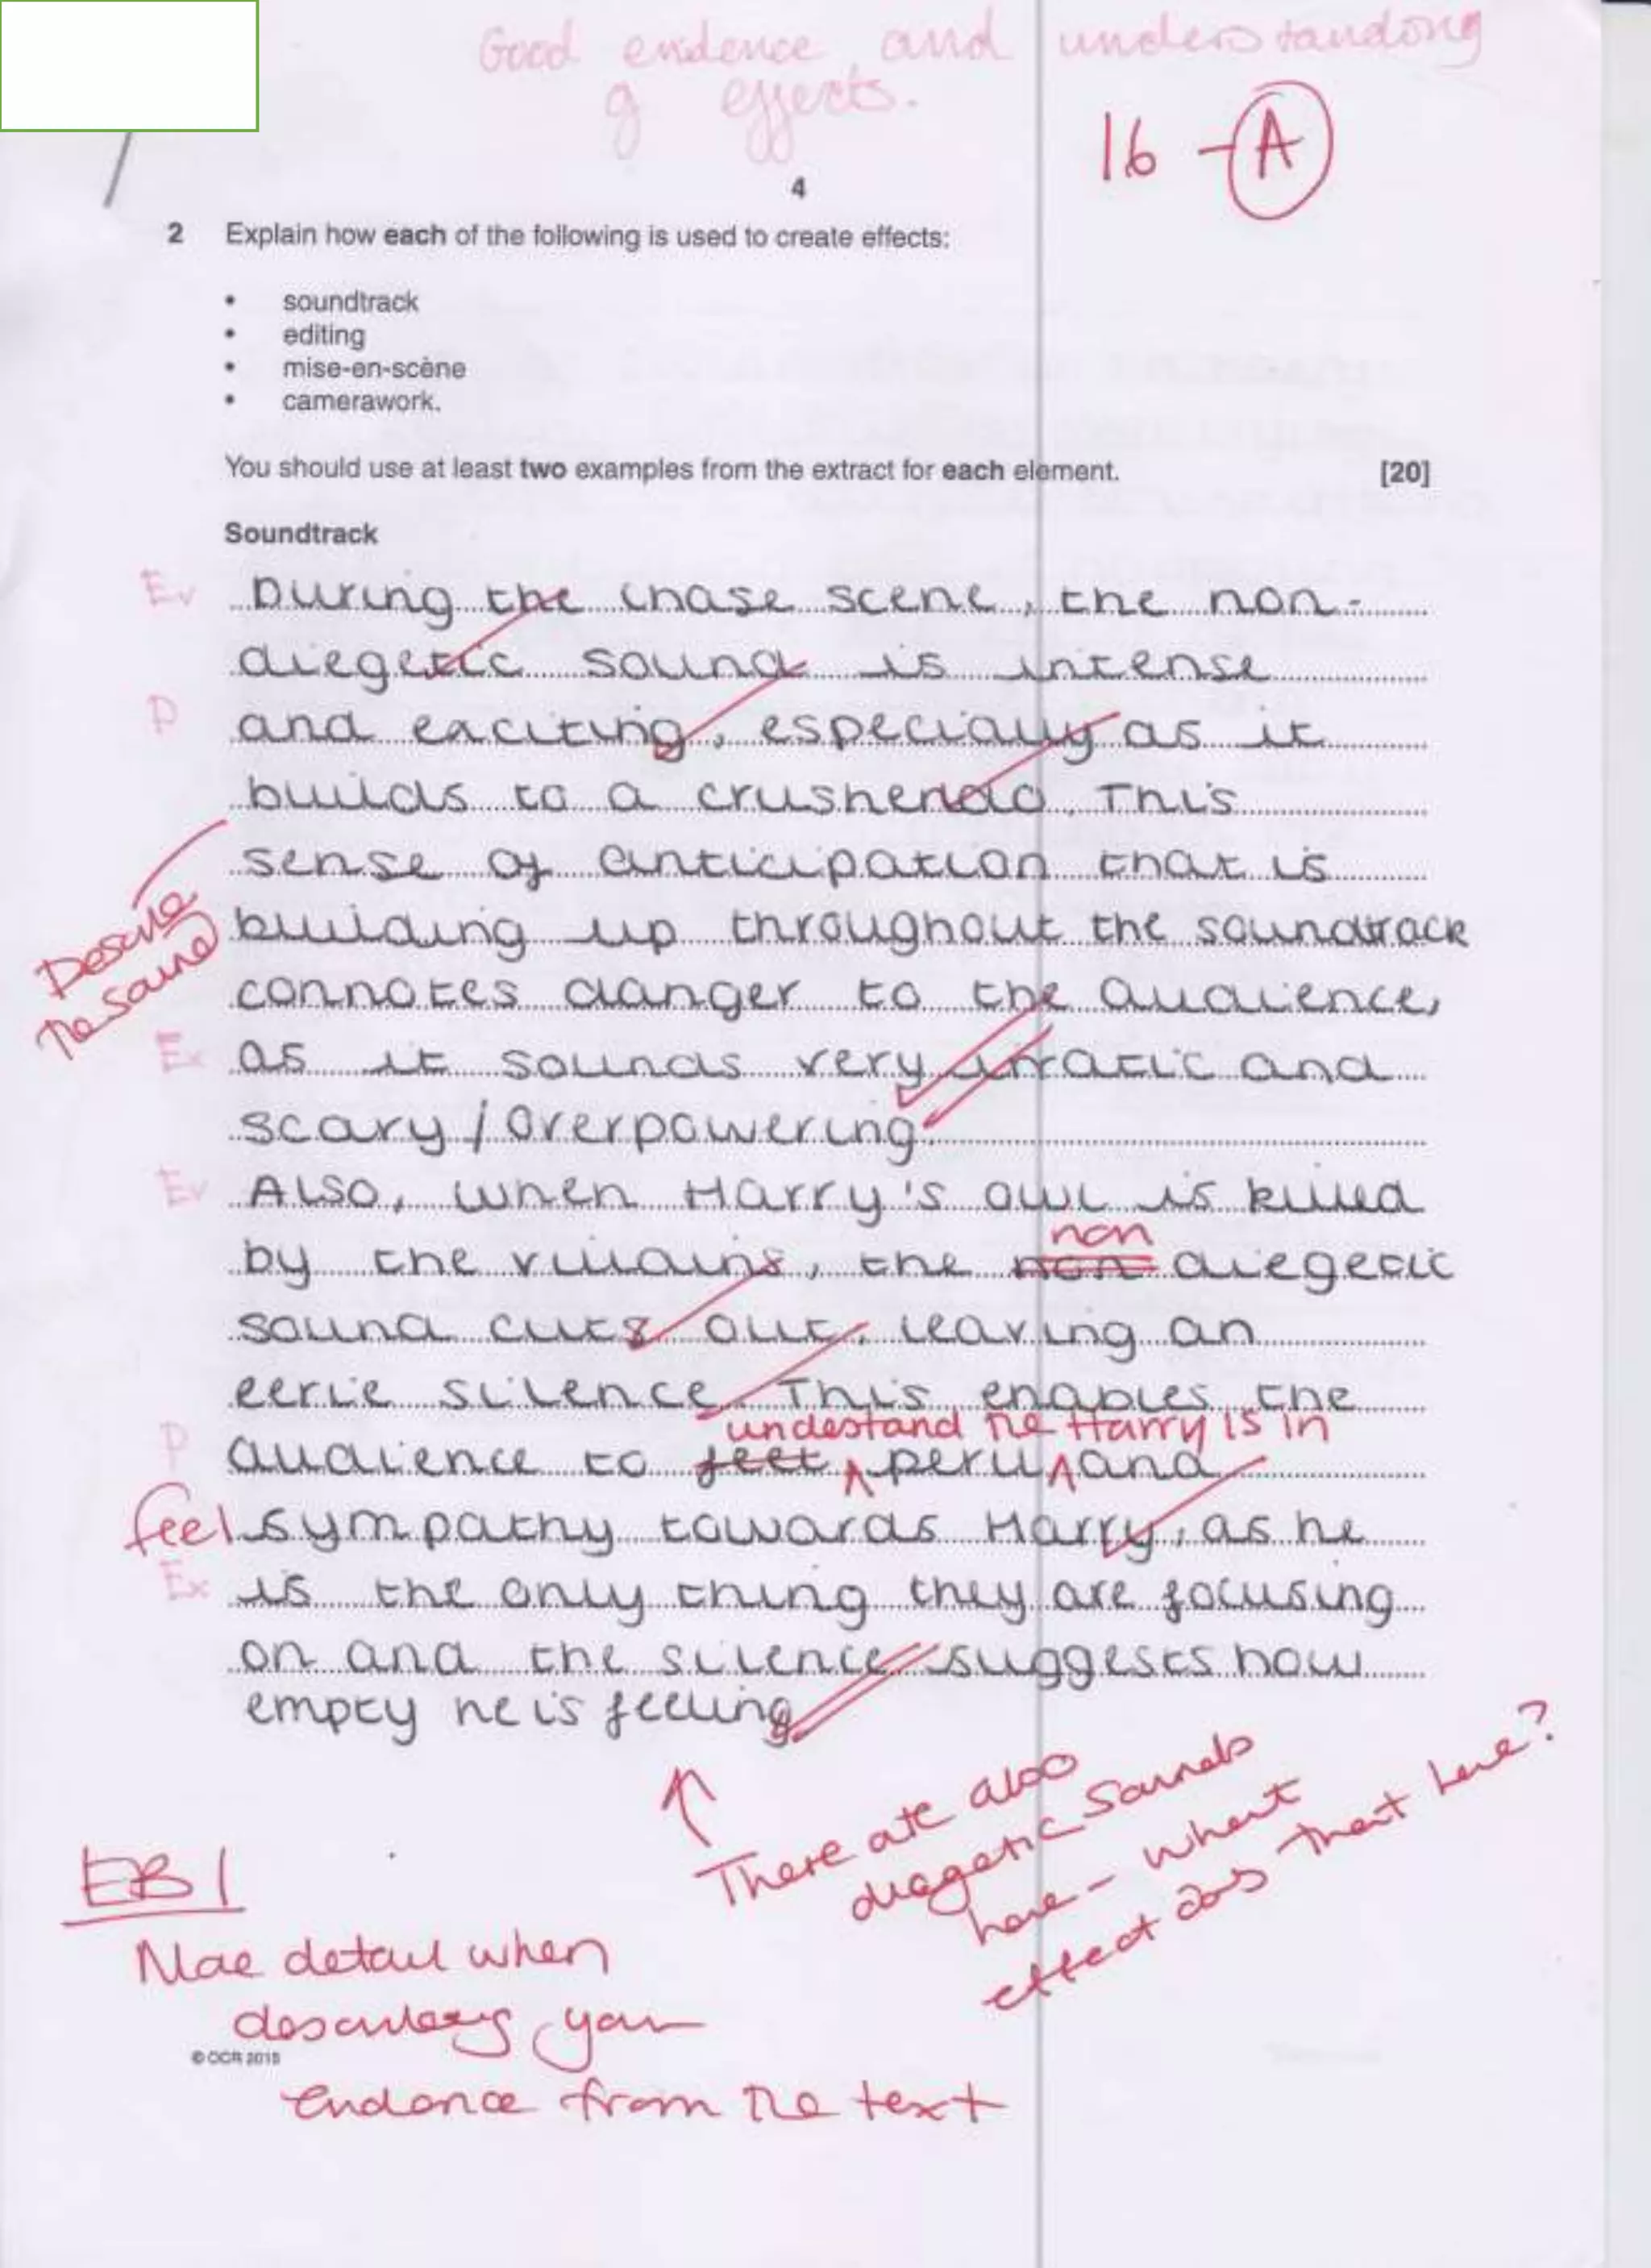 Good evidence and understanding
of effects.
16 - A
4
2 Explain how each of the following is used to create effects:
• soundtrack
• editing
• mise-en-scène
• camerawork.
You should use at least two examples from the extract for each element. [20]
Soundtrack
Ev During the chase scene, the non-
diegetic sound is intense
P and exciting, especially as it
builds to a crushendo. This
sense of anticipation that is
Describe
the sound
building up throughout the soundtrack
connotes danger to the audience,
Ex as it sounds very irratic and
scary / overpowering.
Ev Also, when Harry's owl is killed
non
by the villains, the non diegetic
sound cuts out, leaving an
eerie silence. This enables the
undestand the Harry is in
P audience to feel peril and
feel sympathy towards Harry, as he
Ex is the only thing they are focusing
on and the silence suggests how
empty he is feeling
There are also
diagetic sounds
here - what
effect does that have?
EBI
More detail when
describing your
evidence from the text
© OCR 2015